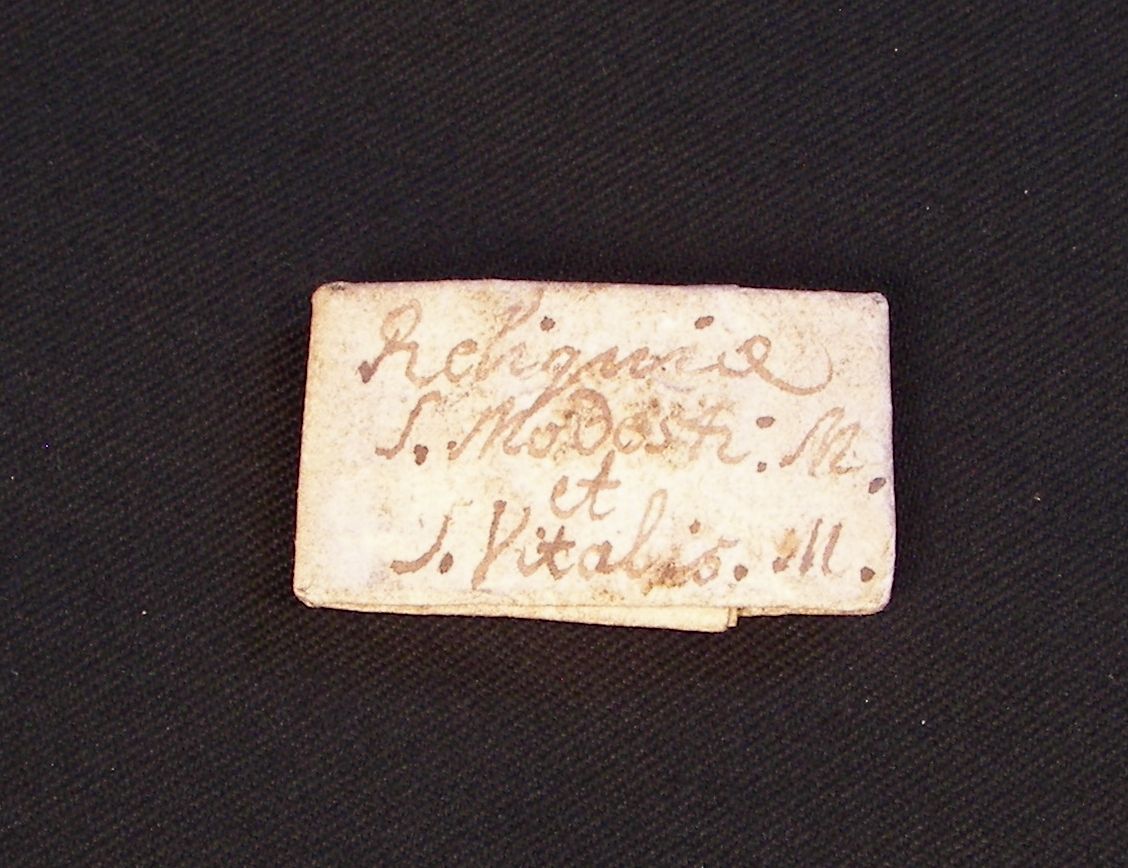 Reliquiæ
S. Modesti: M.
et
S. Vitalis. M.